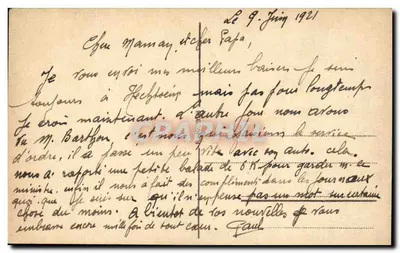 Le 9 Juin 1921
Cher Maman, et cher Papa,
Je vous envoi mes meilleurs baisers je suis
toujours à mais pas pour longtemps
je crois maintenant. d'autre fois nous avons
vu M. Barthou, et nous le service
d'ordre, il a passé un peu vite avec son auto. cela
nous a raporté une petite balade de 6 K pour garder m. le
ministre, enfin il nous a fait des compliments dans les journeaux
quoi que je suis sur qu'il n'en pense pas un mot sur certaine
chose du moins. A bientot de vos nouvelles je vous
embrasse encore mille fois de tout cœur. Paul